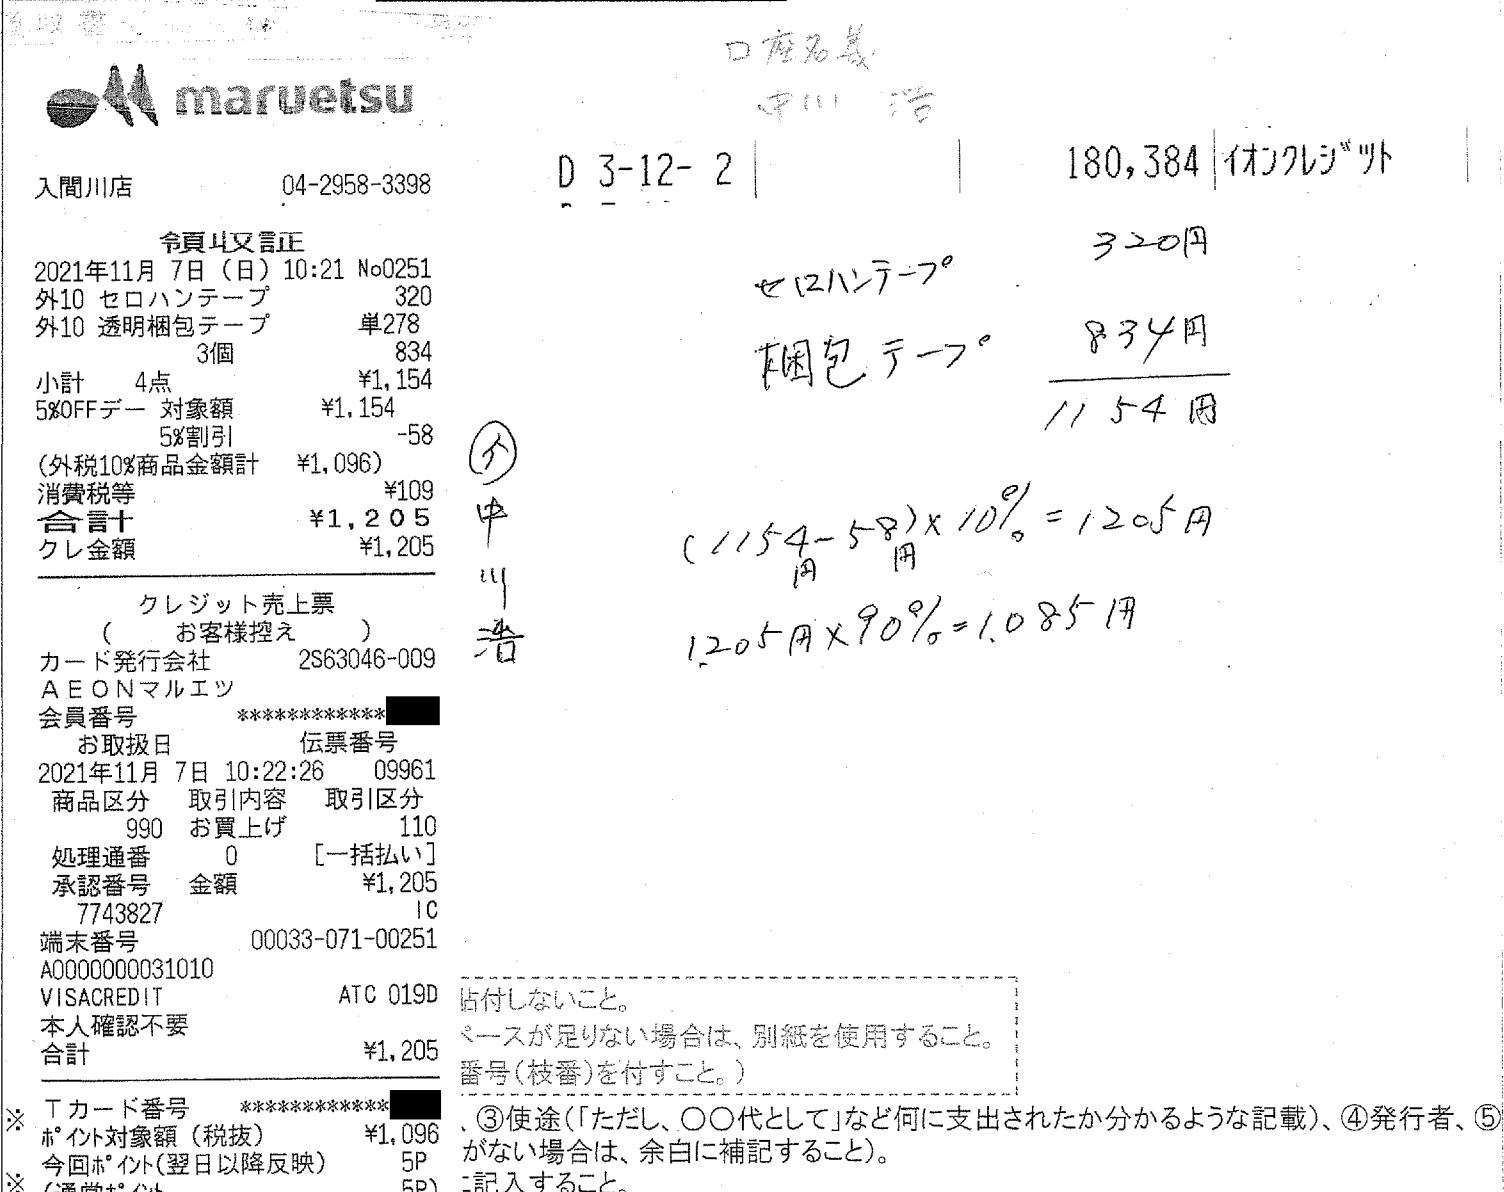 maruetsu
入間川店 04-2958-3398
領収証
2021年11月 7日(日) 10:21 No0251
外10 セロハンテープ 320
外10 透明梱包テープ 単278
3個 834
小計 4点 ¥1,154
5%OFFデー 対象額 ¥1,154
5%割引 -58
(外税10%商品金額計 ¥1,096)
消費税等 ¥109
合計 ¥1,205
クレ金額 ¥1,205
クレジット売上票
( お客様控え )
カード発行会社 2S63046-009
AEONマルエツ
会員番号 ************
お取扱日 伝票番号
2021年11月 7日 10:22:26 09961
商品区分 取引内容 取引区分
990 お買上げ 110
処理通番 0 [一括払い]
承認番号 金額 ¥1,205
7743827 IC
端末番号 00033-071-00251
A0000000031010
VISACREDIT ATC 019D
本人確認不要
合計 ¥1,205
Tカード番号 ************
ポイント対象額(税抜) ¥1,096
今回ポイント(翌日以降反映) 5P
(通常ポイント 5P)
口座名義
中川 浩
D 3-12- 2 180,384 イオンクレジット
セロハンテープ 320円
梱包テープ 834円
1154円
中川浩
(1154円-58円)×10%=1205円
1,205円×90%=1,085円
貼付しないこと。
ペースが足りない場合は、別紙を使用すること。
番号(枝番)を付すこと。)
※ 、③使途(「ただし、〇〇代として」など何に支出されたか分かるような記載)、④発行者、⑤
がない場合は、余白に補記すること)。
※ に記入すること。